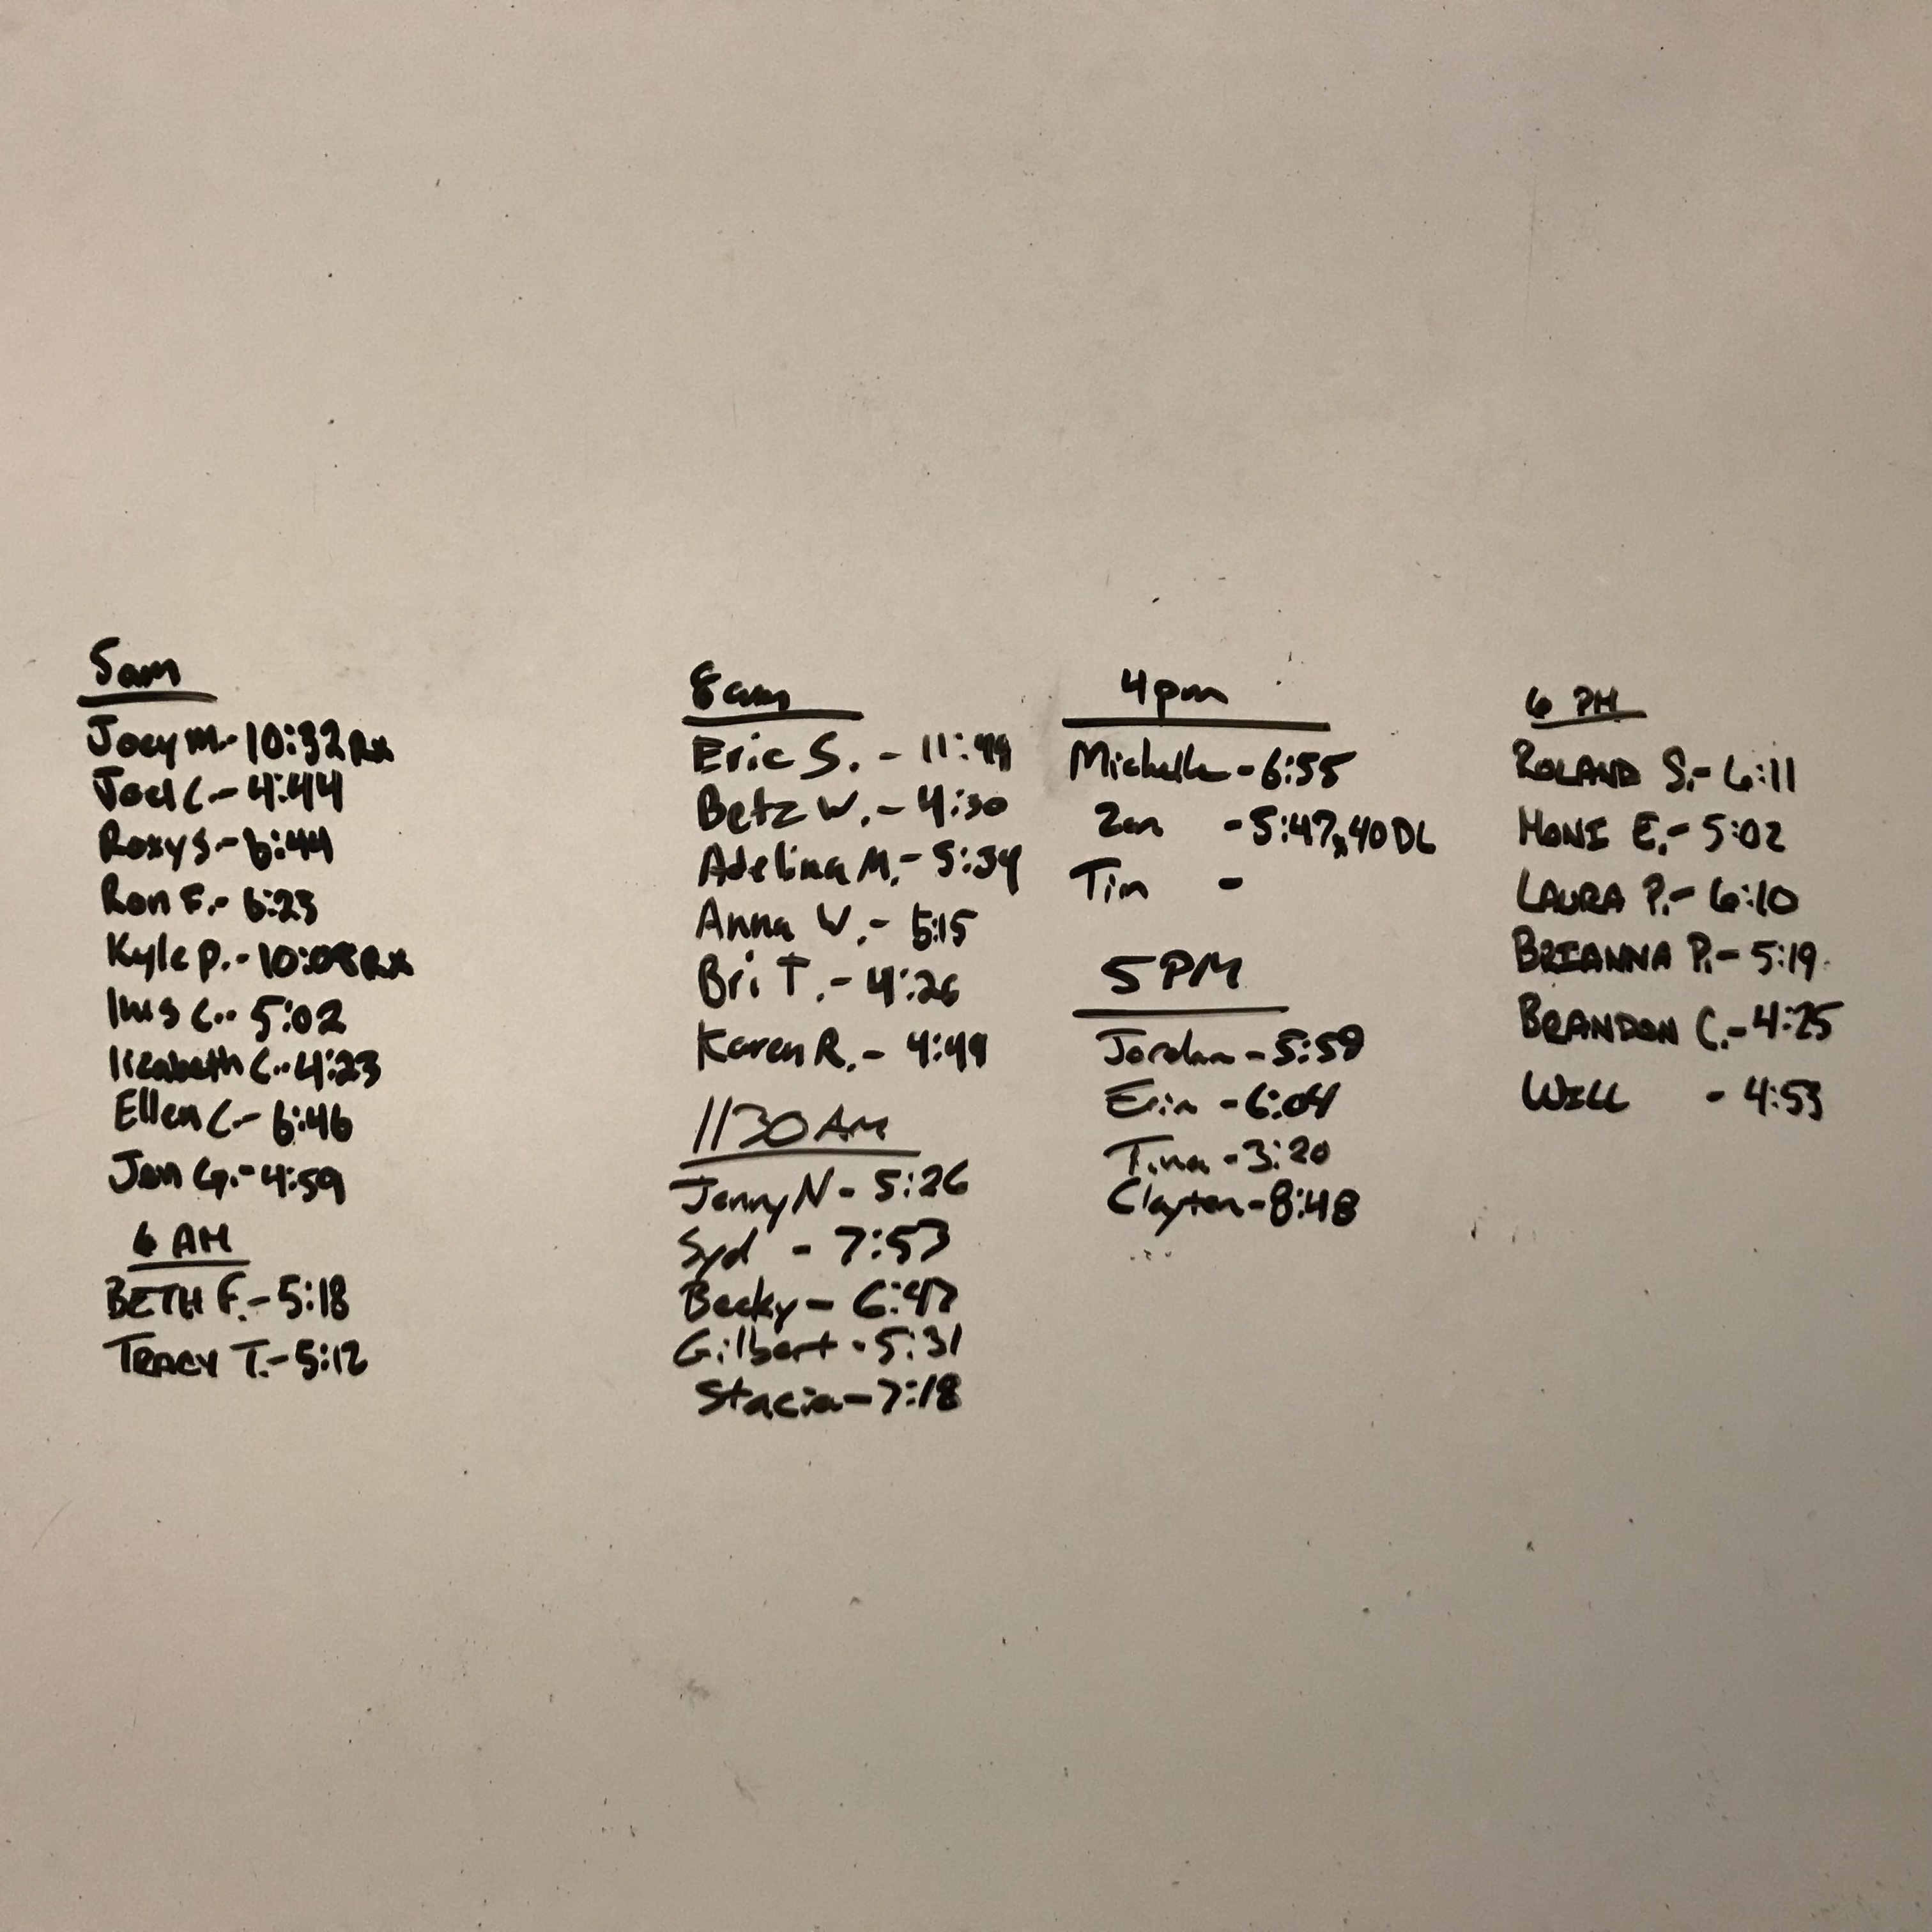 5am
Joey M. - 10:32 Rx
Joel C. - 4:44
Roxy S - 6:44
Ron F. - 6:23
Kyle P. - 10:08 Rx
C. - 5:02
Lizabeth C. - 4:23
Ellen C. - 6:46
Jon G. - 4:59
6 AM
BETH F. - 5:18
TRACY T. - 5:12
8am
Eric S. - 11:49
Betz W. - 4:30
Adelina M. - 5:34
Anna W. - 5:15
Bri T. - 4:26
Karen R. - 4:49
1130 AM
Jenny N - 5:26
Syd - 7:53
Becky - 6:47
Gilbert - 5:31
Stacia - 7:18
4pm
Michelle - 6:55
Zan - 5:47, 40 DL
Tim -
5 PM
Jordan - 5:58
Erin - 6:04
Tina - 3:20
Clayton - 8:48
6 PM
ROLAND S. - 6:11
MONI E. - 5:02
LAURA P. - 6:10
BRIANNA P. - 5:19
BRANDON C. - 4:25
WILL - 4:53